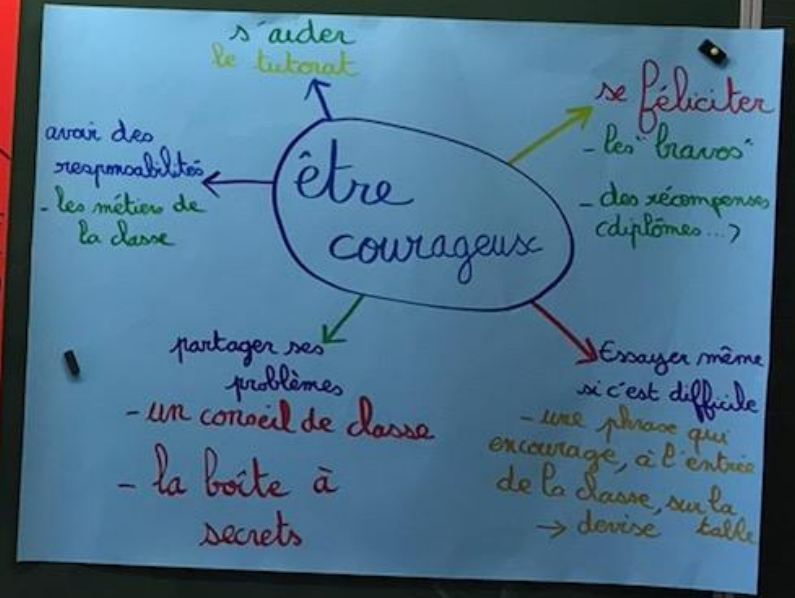 s'aider
le tutorat
se féliciter
- les "bravos"
- des récompenses
(diplômes...)
avoir des
responsabilités
- les métiers de
la classe
être
courageux
partager ses
problèmes
- un conseil de classe
- la boîte à
secrets
Essayer même
si c'est difficile
- une phrase qui
encourage, à l'entrée
de la classe, sur la
→ devise table